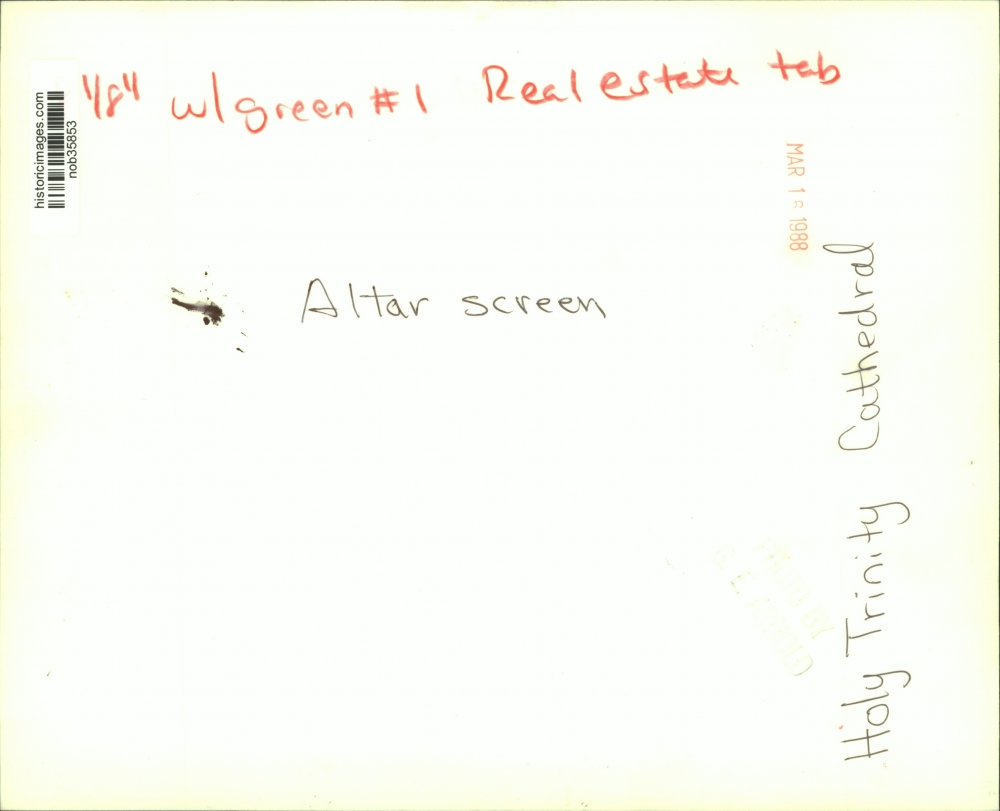 1/8" w/green #1 Real estate tab
historicimages.com
nob35853
MAR 16 1988
Altar screen
Holy Trinity Cathedral